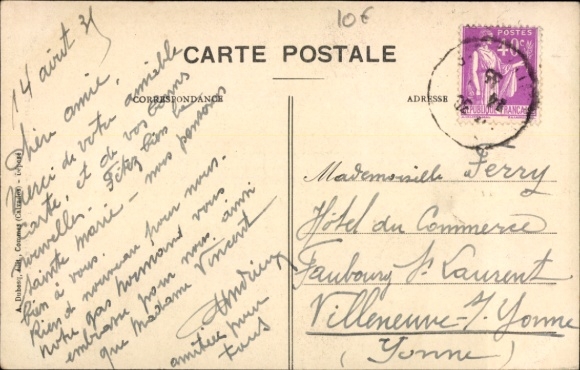 10€
CARTE POSTALE
CORRESPONDANCE
ADRESSE
POSTES
40c
RÉPUBLIQUE FRANÇAISE
14 août 3
Chère amie,
Merci de votre aimable
carte, et de vos bonnes
nouvelles. Fêtez bien la
Sainte Marie - nous pensons
bien à vous.
Rien de nouveau pour nous.
notre gas normand vous
embrasse pour nous ainsi
que Madame Vincent
amitiés pour
tous
Mademoiselle Ferry
Hôtel du Commerce
Faubourg St Laurent
Villeneuve-s/-Yonne
(Yonne)
A. Dubosq, édit., (Calvados) - Déposé